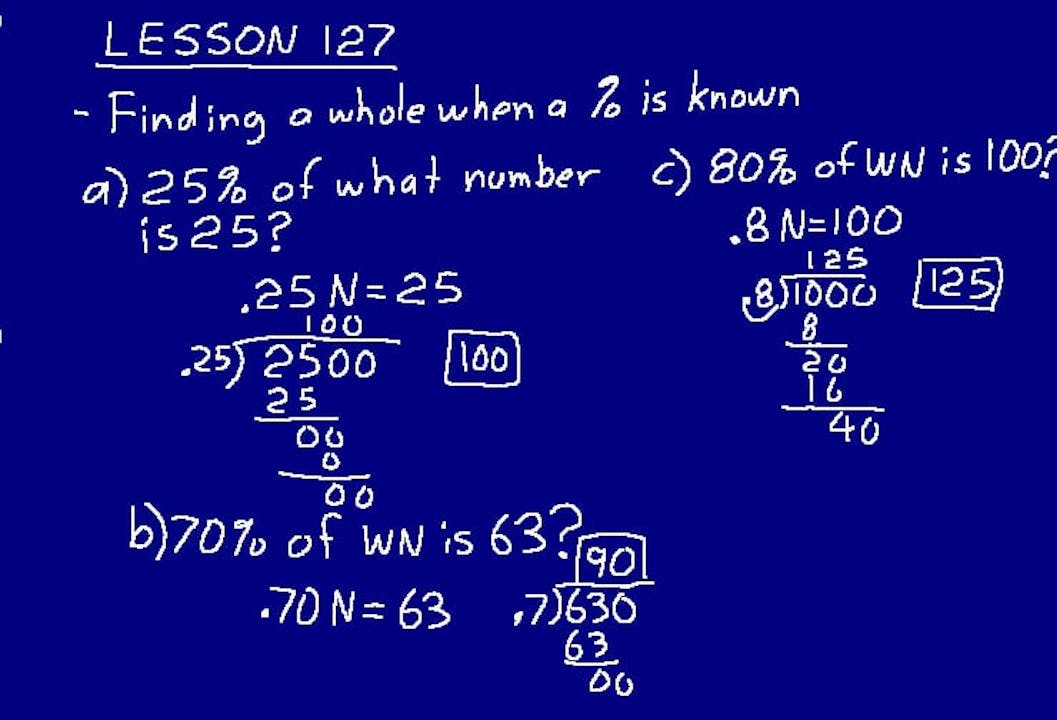 LESSON 127
- Finding a whole when a % is known
a) 25% of what number
is 25?
.25 N = 25
100
.25)2500
100
25
00
0
00
b) 70% of WN is 63?
.70 N = 63
90
.7)630
63
00
c) 80% of WN is 100?
.8 N = 100
125
.8)1000
125
8
20
16
40